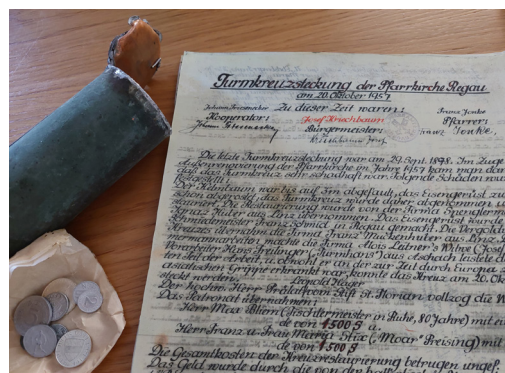 Turmkreuzsteckung der Pfarrkirche Regau
am 20. Oktober 1957
Zu dieser Zeit waren: Franz Jonke
Kooperator: Josef Kirschbaum Pfarrer:
Bürgermeister: Franz Jonke,
Die letzte Turmkreuzsteckung war am 29. Sept. 1898. Im Zuge
Außenrenovierung der Pfarrkirche im Jahre 1957 kam man dar
daß das Turmkreuz sehr schadhaft war. folgende Schäden wur
festgestellt:
Der Helmbaum war bis auf 1m abgefault, das Eisengerüst
schon abgerostet, das Turmkreuz wurde daher abgenommen
Die Restaurierung wurde von der Firma Spengler
Firma: aus Linz übernommen. Das Eisengerüst wurde
Schmiedmeister Franz Schmid in Regau gemacht. Die Vergold
Kreuzes übernahm die Firma Franz Mackenhuber aus Linz.
Zimmermannarbeiten machte die Firma Alois
Vorarbeiter Hans Freilinger, "Turmhans" aus Aschach leistete d
ten Teil der Arbeit. Obwohl er an der zur Zeit durch Europa
asiatischen Grippe erkrankt war, konnte das Kreuz am 20. Ok
steckt werden. Leopold Hager
Der hochw. Herr Prälat von Stift St. Florian vollzog die W
Das Patronat übernahmen:
Herr Max (Tischlermeister in Ruhe, 80 Jahre) mit ei
de von 1.500 S u.
Herr Franz u. Frau Maria Stix, (Moar Preising) mit
de von 1.500 S
Die Gesamtkosten der Kreuzrestaurierung betrugen ungef.
Das Geld wurde durch die von den